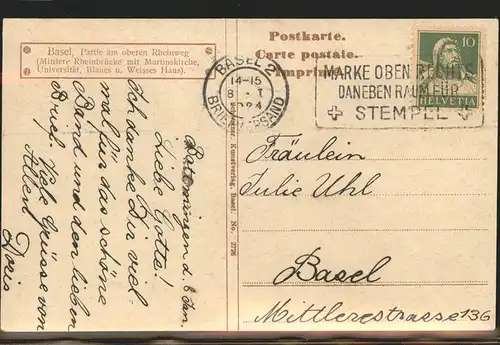 Basel, Partie am oberen Rheinweg
(Mittlere Rheinbrücke mit Martinskirche,
Universität, Blaues u. Weisses Haus).
Postkarte.
Carte postale.
BASEL 2
14-15
BRIEFVERSAND
MARKE OBEN RECHTS
DANEBEN RAUM FÜR
STEMPEL
10
HELVETIA
Kunstverlag, Basel. No. 2726
d. 8. Jan.
Liebe Gotte!
Ich danke Dir viel-
mal für das schöne
Band und den lieben
Brief. Viele Grüsse von
Allen
Doris
Fräulein
Julie Uhl
Basel
Mittlerestrasse 136